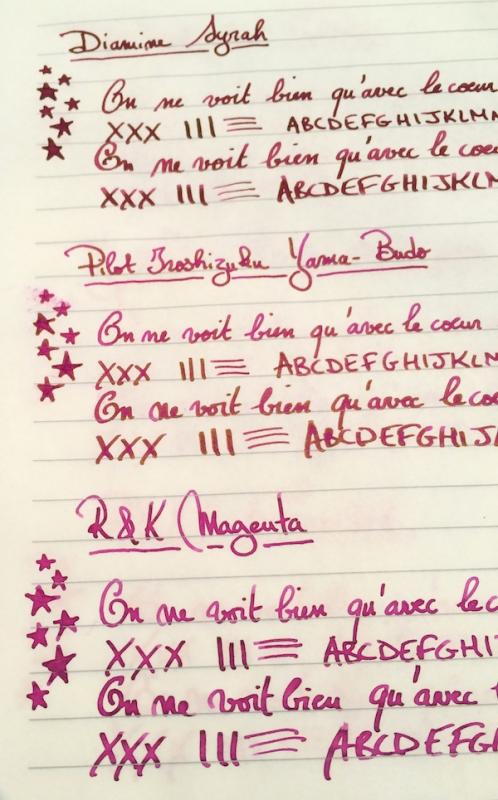 Diamine Syrah
On ne voit bien qu'avec le coeur
XXX III ABCDEFGHIJKLM
On ne voit bien qu'avec le coeu
XXX III ABCDEFGHIJKLM
Pilot Iroshizuku Yama-Budo
On ne voit bien qu'avec le coeur
XXX III ABCDEFGHIJKLM
On ne voit bien qu'avec le coe
XXX III ABCDEFGHIJ
R&K Magenta
On ne voit bien qu'avec le c
XXX III ABCDEFGHI
On ne voit bien qu'avec
XXX III ABCDEFG